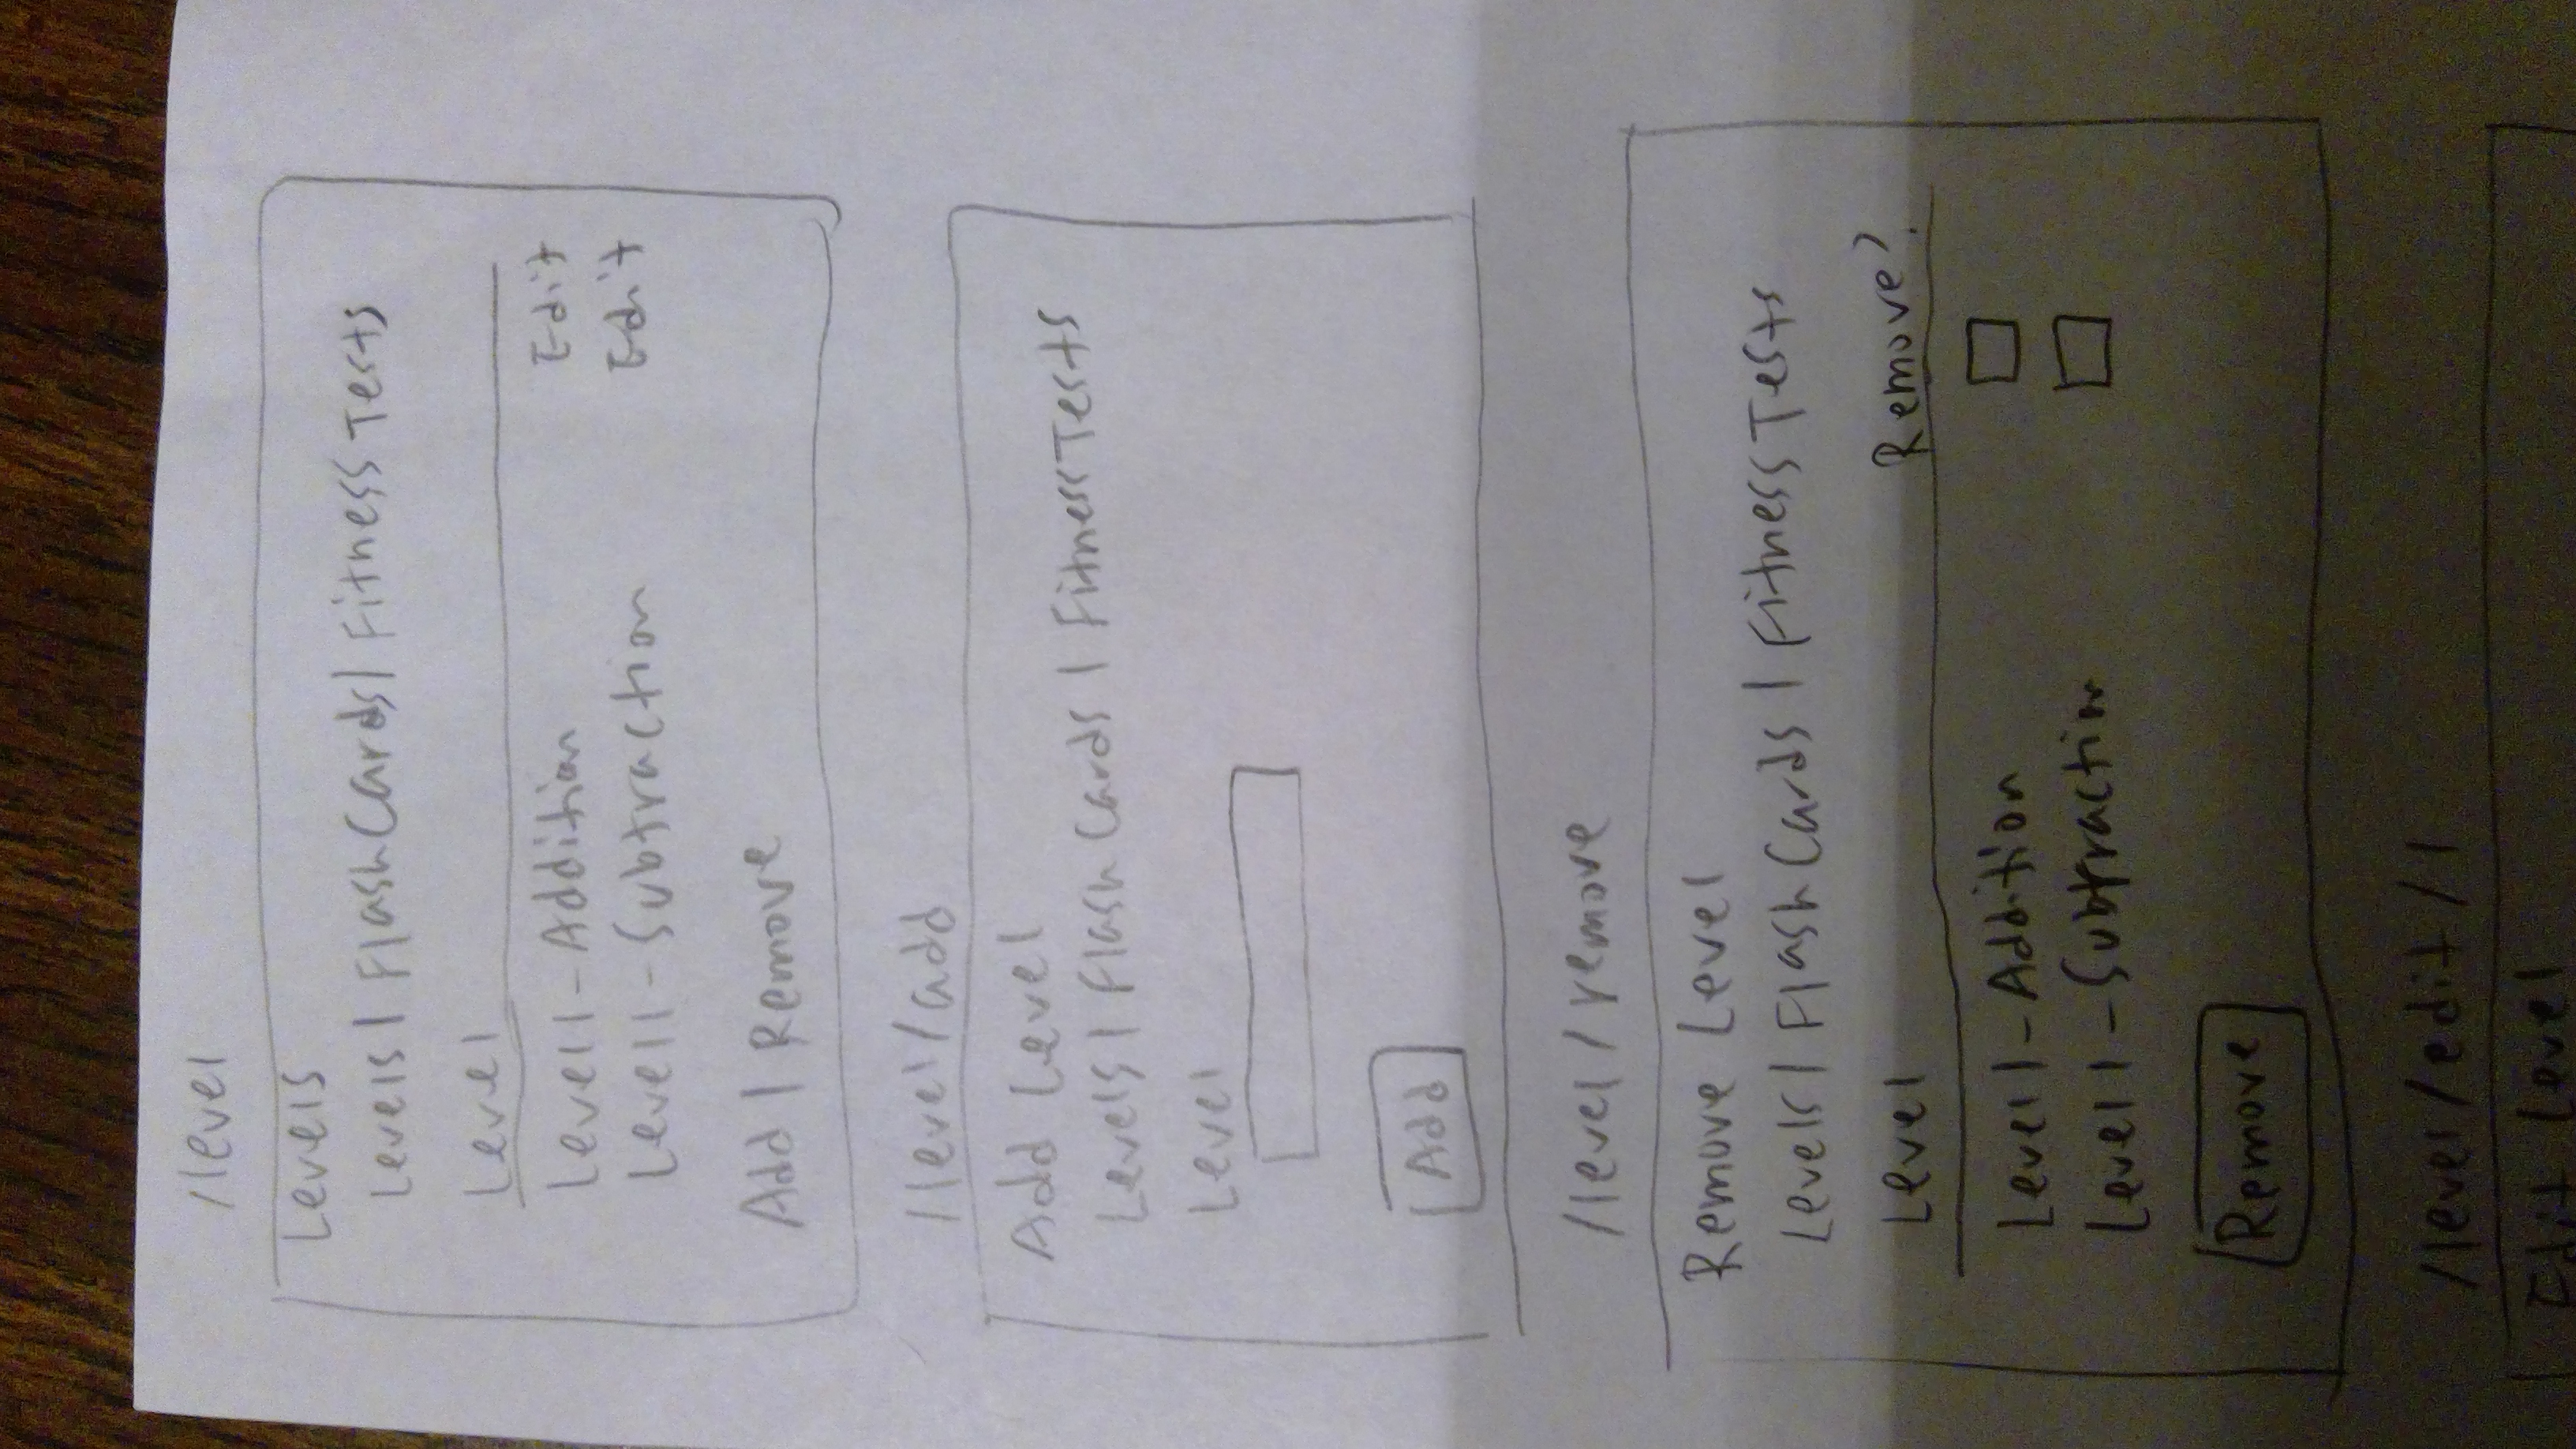 /level
Levels
Levels | FlashCards | Fitness Tests
Level
Level 1 - Addition Edit
Level 1 - Subtraction Edit
Add | Remove
/level/add
Add Level
Levels | Flash Cards | Fitness Tests
Level
Add
/level/remove
Remove Level
Levels | Flash Cards | Fitness Tests
Level Remove?
Level 1 - Addition
Level 1 - Subtraction
Remove
/level/edit/1
Edit Level